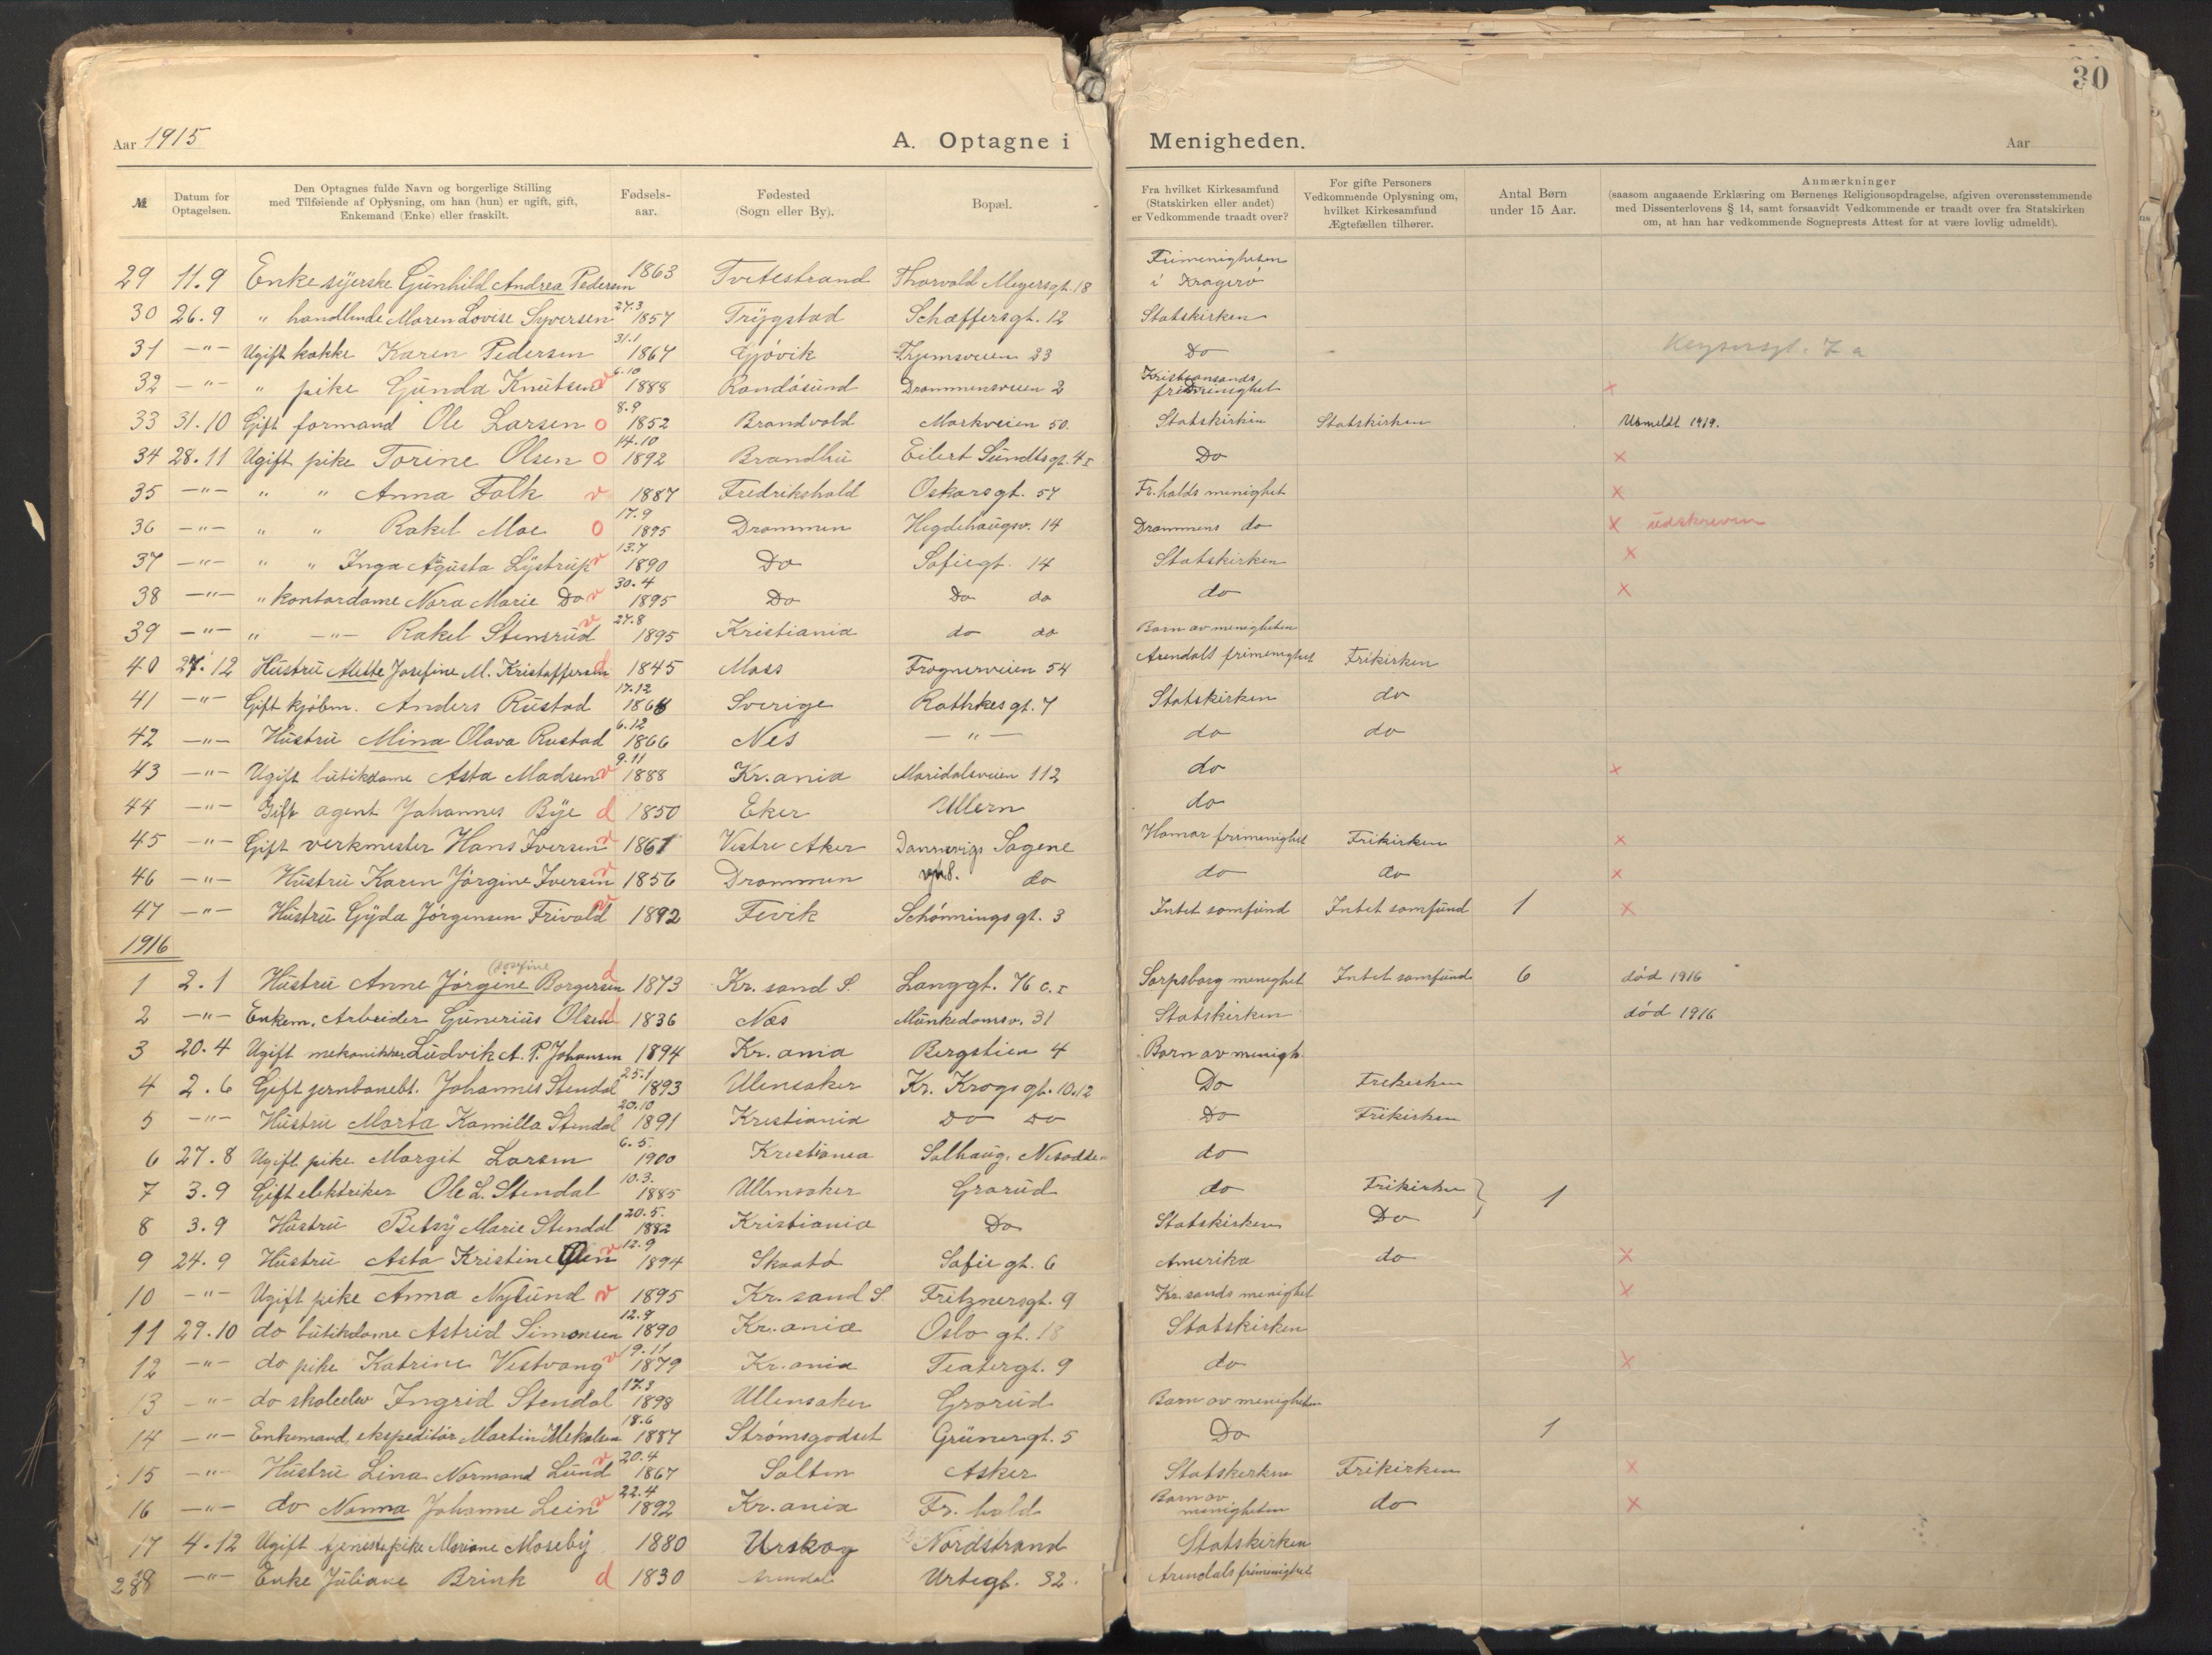 30
Aar 1915 A. Optagne i Menigheden. Aar
№ Datum for Optagelsen. Den Optagnes fulde Navn og borgerlige Stilling med Tilføiende af Oplysning, om han (hun) er ugift, gift, Enkemand (Enke) eller fraskilt. Fødsels-aar. Fødested (Sogn eller By). Bopæl. Fra hvilket Kirkesamfund (Statskirken eller andet) er Vedkommende traadt over? For gifte Personers Vedkommende Oplysning om, hvilket Kirkesamfund Ægtefællen tilhører. Antal Børn under 15 Aar. Anmærkninger (saasom angaaende Erklæring om Børnenes Religionsopdragelse, afgiven overensstemmende med Dissenterlovens § 14, samt forsaavidt Vedkommende er traadt over fra Statskirken om, at han har vedkommende Sogneprests Attest for at være lovlig udmeldt).
29 11.9 Enke syerske Gunhild Andrea Pedersen 1863 Tvetestrand Thorvald Meyersgt. 18 Frimenigheten i Kragerø
30 26.9 " handlende Maren Lovise Syversen 27.3 1857 Trygstad Schæffersgt. 12 Statskirken
31 —"— Ugift kokke Karen Pedersen 31.1 1867 Gjøvik 23 Do Keysersgt. 7a
32 —"— " pike Gunda Knutsen v 6.10 1888 Randøsund Drammensveien 2 Kristiansands frimenighet x
33 31.10 Gift formand Ole Larsen o 8.9 1852 Brandvold Markveien 50. Statskirken Statskirken Utmeldt 1919.
34 28.11 Ugift pike Torine Olsen o 14.10 1892 Brandbu Eilert Sundtsgt. 4 I Do x
35 —"— " " Anna Falk v 1887 Fredrikshald Oskarsgt. 57 Fr.halds menighet x
36 —"— " " Rakel Moe o 17.9 1895 Drammen Hegdehaugsv. 14 Drammens do x udskreven
37 —"— " " Inga Agusta Lystrup v 13.7 1890 Do Sofiegt. 14 Statskirken x
38 —"— " kontordame Nora Marie Do v 30.4 1895 Do Do do do x
39 —"— " —"— Rakel Stensrud v 27.8 1895 Kristiania do do Barn av menigheten
40 27.12 Hustru Mette Josefine M. Kristoffersen d 1845 Moss Frognerveien 54 Arendals frimenighet Frikirken
41 —"— Gift kjøbm. Anders Rustad 17.12 1868 Sverige Rathkesgt. 7 Statskirken do
42 —"— Hustru Mina Olava Rustad 6.12 1866 Nes —"— do do
43 —"— Ugift butikdame Asta Madsen v 9.11 1888 Kr.ania Maridalsveien 112 do x
44 —"— Gift agent Johannes Bye d 1850 Eker Ullern do
45 —"— Gift verkmester Hans Iversen v 1861 Vestre Aker Dannevigs Sagene Hamar frimenighet Frikirken x
46 —"— Hustru Karen Jørgine Iversen v 1856 Drammen vn 8. do do do x
47 —"— Hustru Gyda Jørgensen Frivold v 1892 Fevik Schønningsgt. 3 Intet samfund Intet samfund 1 x
1916
1 2.1 Hustru Anne Jørgine (Josefine Borgersen d 1873 Kr.sand S. Langgt. 76 c. I Sarpsborg menighet Intet samfund 6 død 1916
2 —"— Enkem. Arbeider Gunerius Olsen d 1836 Nes Munkedamsv. 31 Statskirken død 1916
3 20.4 Ugift mekaniker Ludvik A. P. Johansen 1894 Kr.ania Bergstien 4 Barn av menigh.
4 2.6 Gift jernbanebt. Johannes Stendal 25.1 1893 Ullensaker Kr. Krogs gt. 10.12 Do Frikirken
5 —"— Hustru Marta Kamilla Stendal 20.10 1891 Kristiania Do Do Do Frikirken
6 27.8 Ugift pike Margit Larsen 6.5. 1900 Kristiania Solhaug, Nesodden do
7 3.9 Gift elektriker Ole L. Stendal 10.3. 1885 Ullensaker Grorud do Frikirken } 1
8 3.9 Hustru Betsy Marie Stendal 20.5. 1882 Kristiania Do Statskirken Do
9 24.9 Hustru Asta Kristine v 12.9 1894 Skaatø Sofie gt. 6 Amerika do x
10 —"— Ugift pike Anna Nylund v 1895 Kr.sand S. Fritznersgt. 9 Kr.sands menighet x
11 29.10 do butikdame Astrid Simonsen 12.9 1890 Kr.ania Oslo gt. 18 Statskirken
12 —"— do pike Katrine Vestvang v 19.11 1879 Kr.ania Teatergt. 9 do x
13 —"— do skoleelev Ingrid Stendal 17.3 1898 Ullensaker Grorud Barn av menigheten
14 —"— Enkemand, ekspeditør Martin Mikalsen 18.6 1887 Strømsgodset Grünersgt. 5 Do 1
15 —"— Hustru Lina Normand Lund v 20.4 1867 Salten Asker Statskirken Frikirken x
16 —"— do Nanna Johanne Lein v 22.4 1892 Kr.ania Fr.hald Barn av menigheten do x
17 4.12 Ugift tjenestepike Mariane Moseby 1880 Urskog Nordstrand Statskirken
18 —"— Enke Juliane Brink d 1830 Arendal Urtegt. 32. Arendals frimenighet